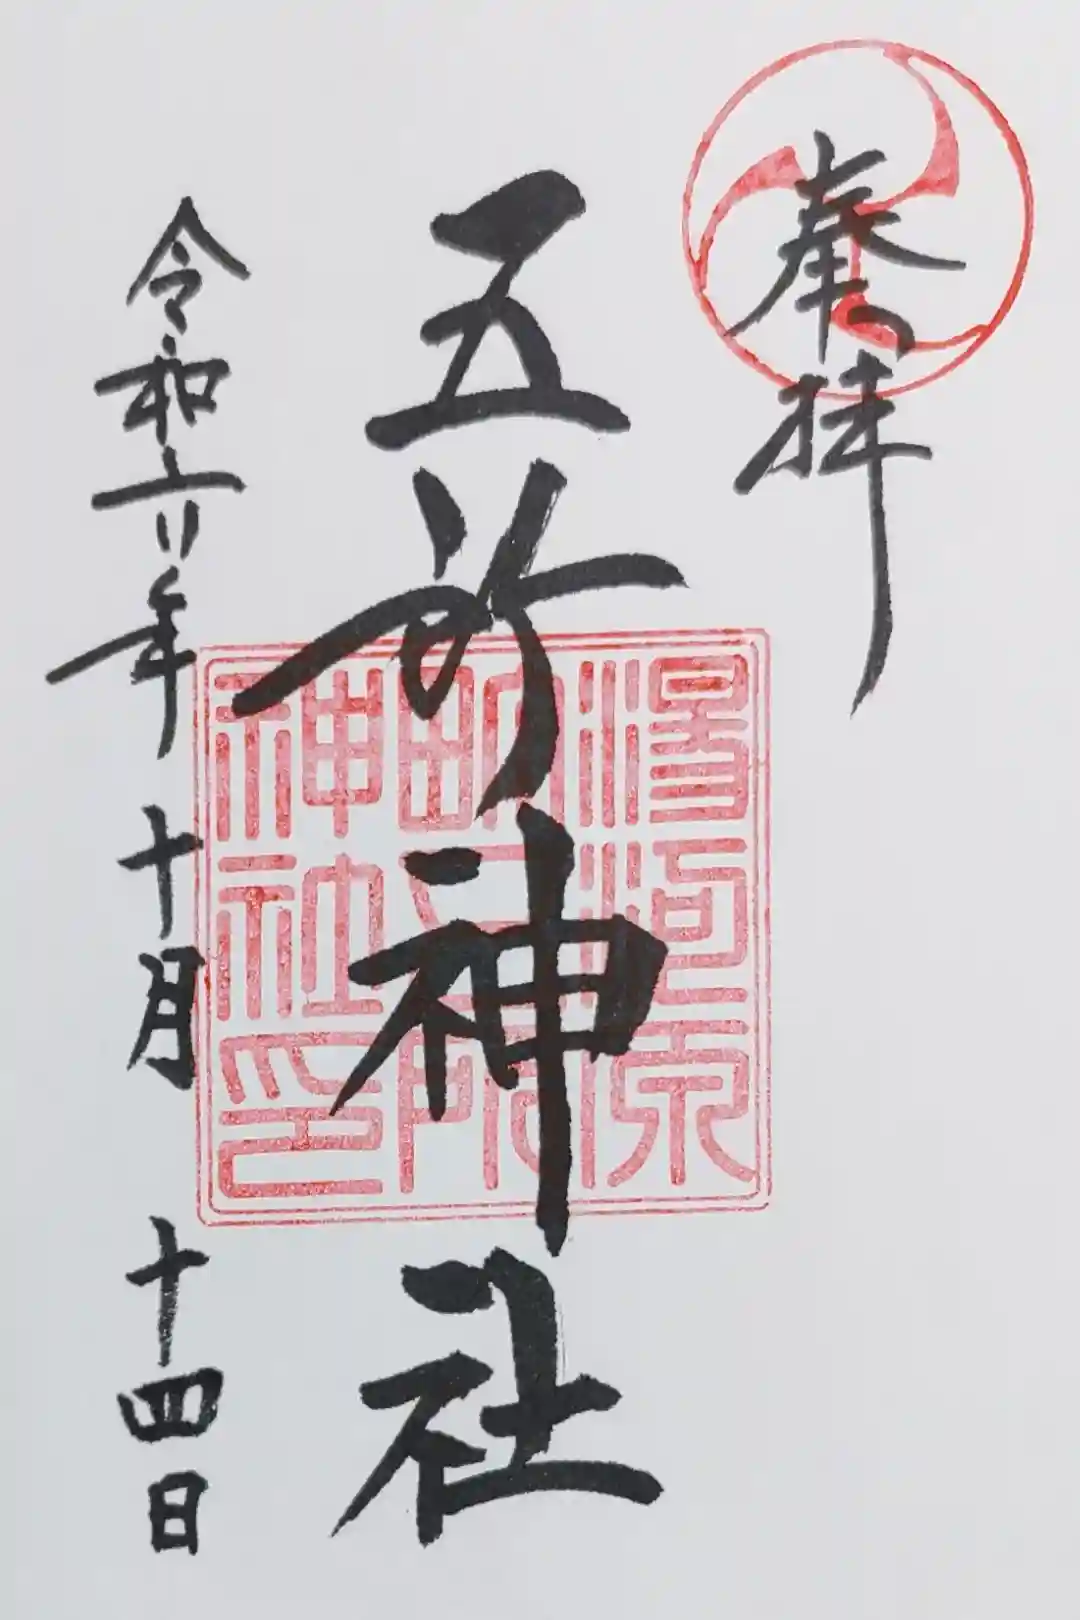 奉拝
五所神社
湯河原
町五所
神社印
令和六年十月十四日